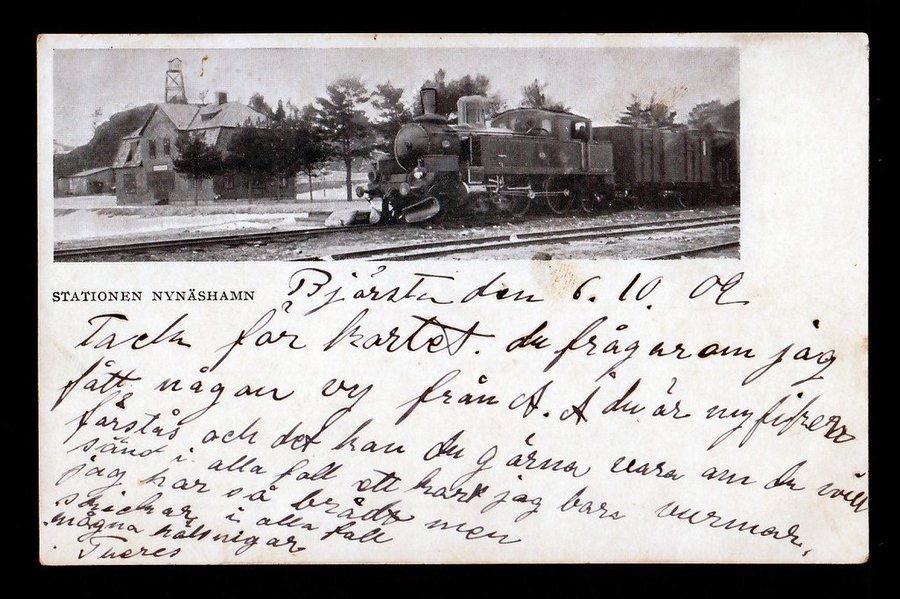 STATIONEN NYNÄSHAMN
den 6. 10. 02
Tack för kortet. du frågar om jag
fått någon vy från A. Å du är nyfiken
förstås och det kan du gärna vara om du vill
sänd i alla fall ett kort jag bara
jag har så brådt men
skickar i alla fall
många hälsningar